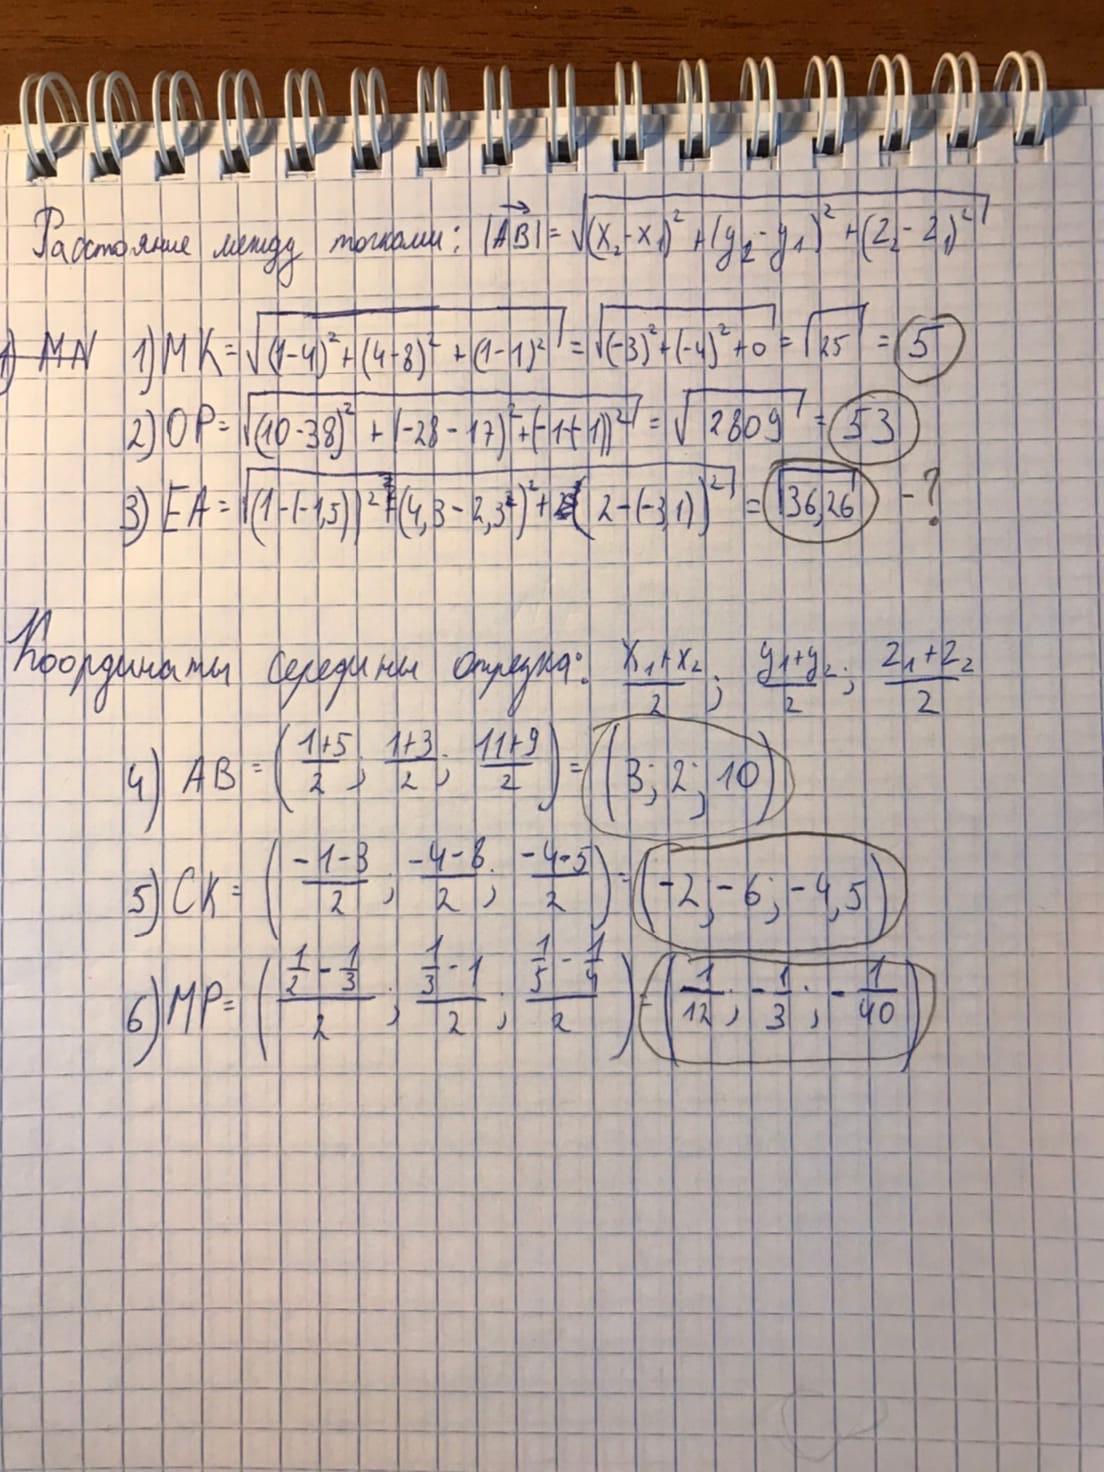 Расстояние между точками: |AB| = √((x₂-x₁)² + (y₂-y₁)² + (z₂-z₁)²)
1) MN 1) MK = √((1-4)² + (4-8)² + (1-1)²) = √((-3)² + (-4)² + 0) = √25 = 5
2) OP = √((10-38)² + (-28-17)² + (-1-(-1))²) = √2809 = 53
3) EA = √((1-(-1,5))² + (4,3-2,3)² + (2-(-3,1))²) = √36,26 - ?
Координаты середины отрезка: (x₁+x₂)/2; (y₁+y₂)/2; (z₁+z₂)/2
4) AB = ((1+5)/2; (1+3)/2; (11+9)/2) = (3; 2; 10)
5) CK = ((-1-3)/2; (-4-8)/2; (-4-5)/2) = (-2; -6; -4,5)
6) MP = ((1/2-1/3)/2; (1/3-1)/2; (1/5-1/4)/2) = (1/12; -1/3; -1/40)